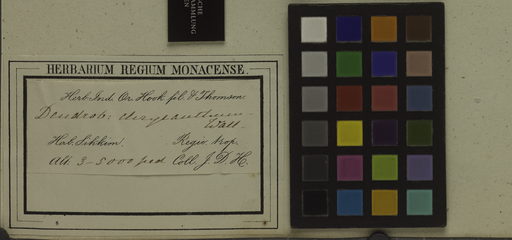 SAMMLUNG
HERBARIUM REGIUM MONACENSE.
Herb. Ind. Or. Hook. fil. & Thomson.
Dendrob: chrysanthum
Wall.
Hab. Sikkim. Regio trop.
Alt. 3-5000 ped Coll. J. D. H.